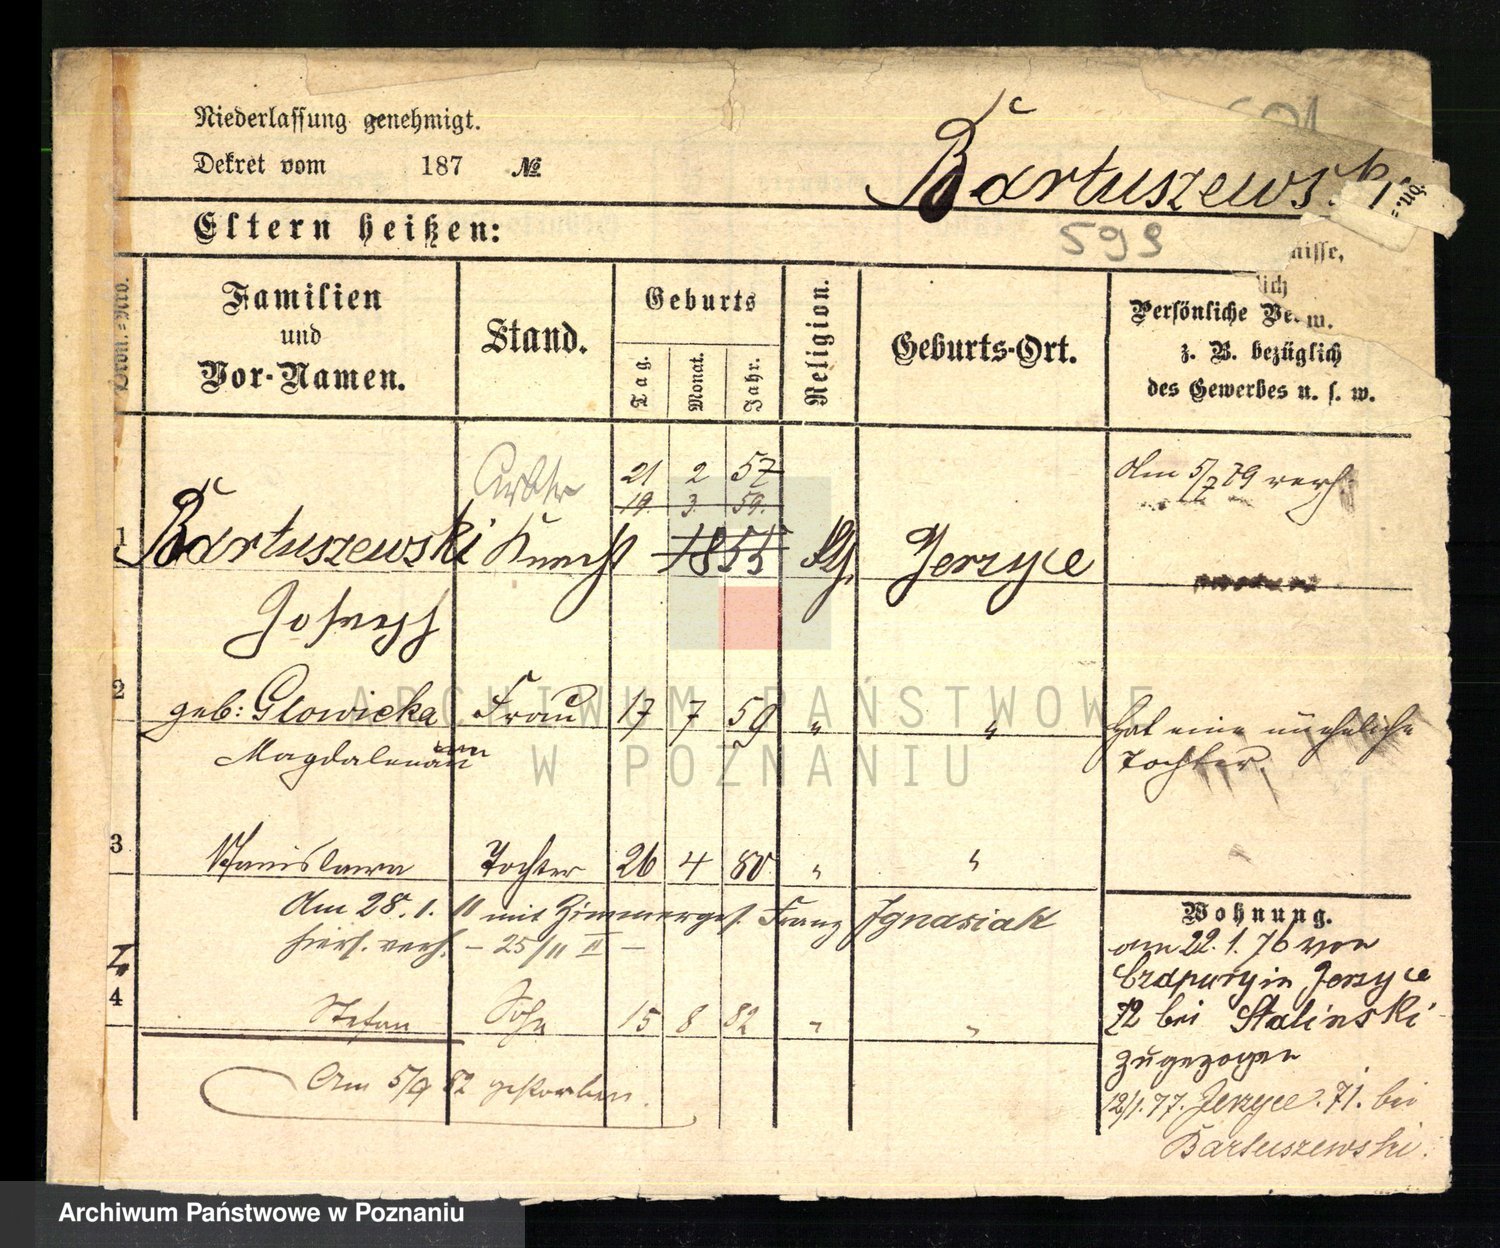 Niederlassung genehmigt.
Dekret vom 187 №
Bartuszewski
Eltern heißen:
599
Familien und Vor-Namen.
Stand.
Geburts
Tag.
Monat.
Jahr.
Religion.
Geburts-Ort.
nisse,
lich
Persönliche Ve w.
z. B. bezüglich
des Gewerbes u. s. w.
21 2 57
19 3. 59.
Am 5/7 79 verh.
1 Bartuszewski Knecht 1855 Jerzyce
Joseph
2 geb: Glowicka Frau 17 7 59 " " Hat eine uneheliche
Magdalena Tochter.
3 Stanislawa Tochter 26 4 80 " "
Am 28. 1. 11 mit Zimmerges. Franz Ignasiak
hiers. verh. - 25/11 II -
4 Stefan Sohn 15 8 82 " "
Am 5/9 82 gestorben.
Wohnung.
am 22. 1. 76 von
in Jerzyce
72 bei Stalinski
zugezogen
12/1. 77. Jerzyce. 71. bei
Bartuszewski.
ARCHIWUM PAŃSTWOWE
W POZNANIU
Archiwum Państwowe w Poznaniu